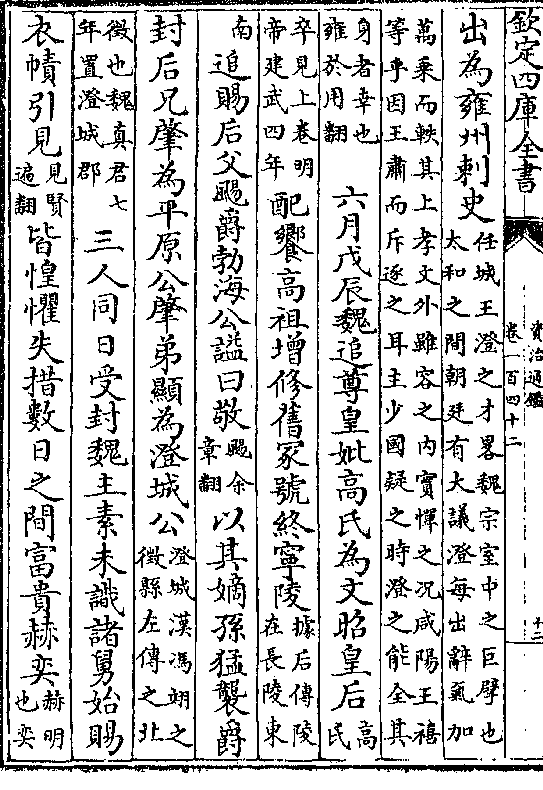 欽定四庫全書
資治通鑑
卷一百四十二
十二
出為雍州刺史
任城王澄之才畧魏宗室中之巨擘也
太和之間朝廷有大議澄每出辭氣加
萬乗而軼其上孝文外雖容之内實憚之况咸陽王禧
等乎因王肅而斥逐之耳主少國疑之時澄之能全其
身者幸也
雍於用翻
六月戊辰魏追尊皇妣高氏為文昭皇后
高
氏
卒見上卷明
帝建武四年
配饗高祖增修舊冡號終寧陵
據后傳陵
在長陵東
南
追賜后父颺爵勃海公諡曰敬
颺余
章翻
以其嫡孫猛襲爵
封后兄肇為平原公肇弟顯為澄城公
澄城漢馮翊之
徵縣左傳之北
徵也魏真君七
年置澄城郡
三人同日受封魏主素未識諸舅始賜
衣幘引見
見賢
遍翻
皆惶懼失措數日之間富貴赫奕
赫明
也奕